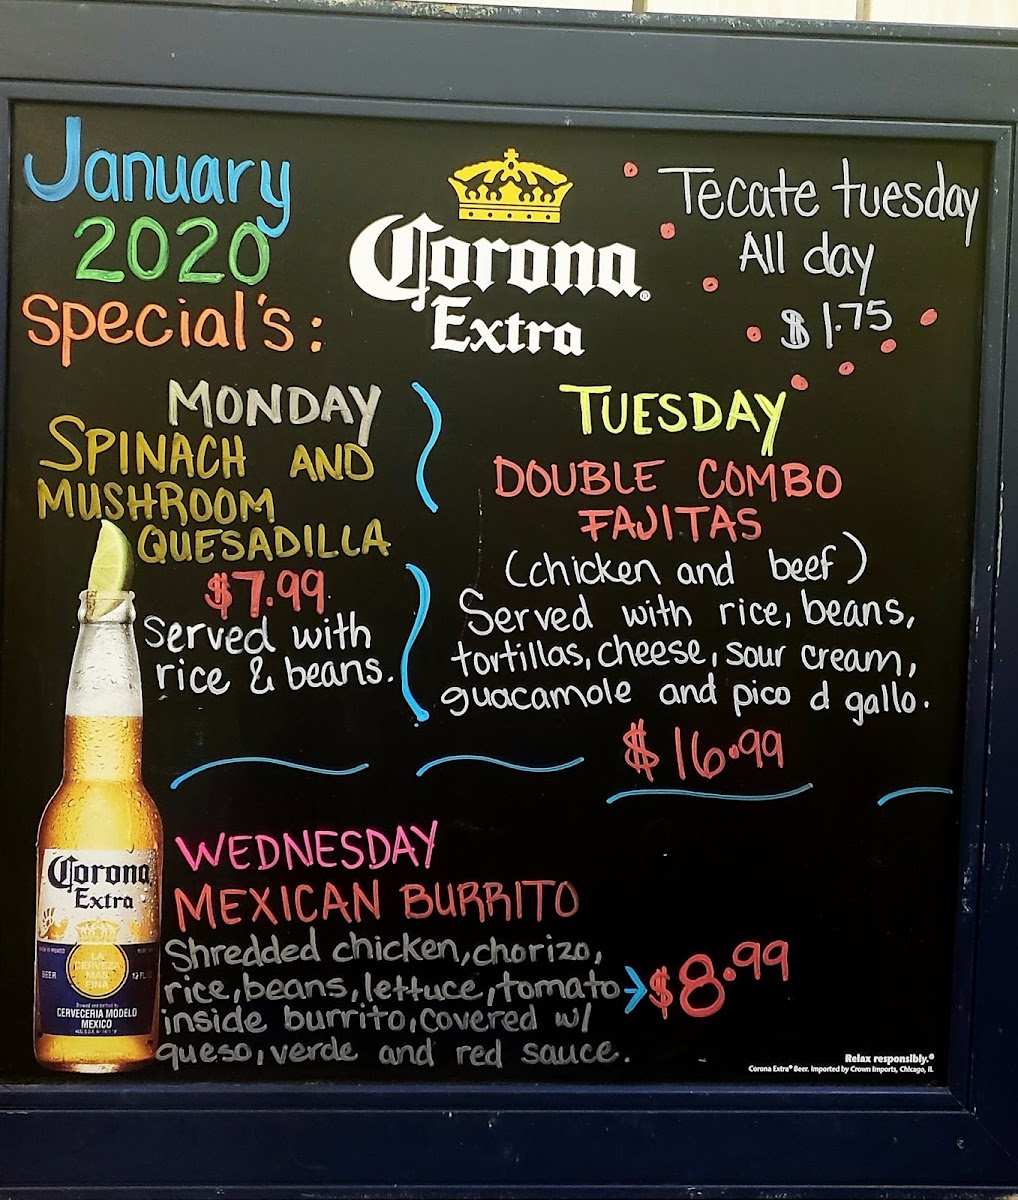 January
2020
Special's:
Corona
Extra
Tecate tuesday
All day
$1.75
MONDAY
SPINACH AND
MUSHROOM
QUESADILLA
$7.99
Served with
rice & beans.
TUESDAY
DOUBLE COMBO
FAJITAS
(chicken and beef)
Served with rice, beans,
tortillas, cheese, sour cream,
guacamole and pico d gallo.
$16.99
WEDNESDAY
MEXICAN BURRITO
Shredded chicken, chorizo,
rice, beans, lettuce, tomato
inside burrito, covered w/
queso, verde and red sauce.
$8.99
Corona
Extra
LA
CERVEZA
MAS
FINA
BEER
CERVECERIA MODELO
MEXICO
Relax responsibly.®
Corona Extra® Beer. Imported by Crown Imports, Chicago, IL